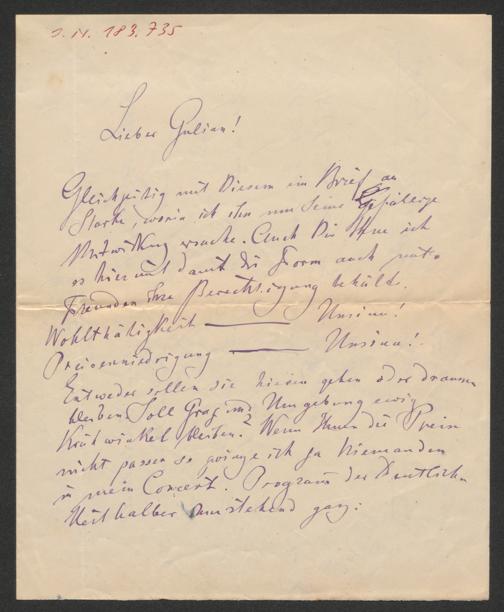 I. N. 183.735
Lieber Julian!
Gleichzeitig mit Diesem ein Brief an
Starke, worin ich ihn um seine Gefällige
Mitwirkung ersuche. Auch Du thue ich
es hiermit damit die Form auch unter
Freunden Ihre Berechtigung behält.
Wohlthätigkeit ——— Unsinn!
Preiserniedrigung ——— Unsinn!
Entweder sollen sie hinein gehen oder draussen
bleiben. Soll Graz und Umgebung ewig
Krähwinkel bleiben? Wenn Ihnen die Preise
nicht passen so zwinge ich ja Niemanden
in mein Concert. Programm der Deutlich-
keit halber umstehend ganz: